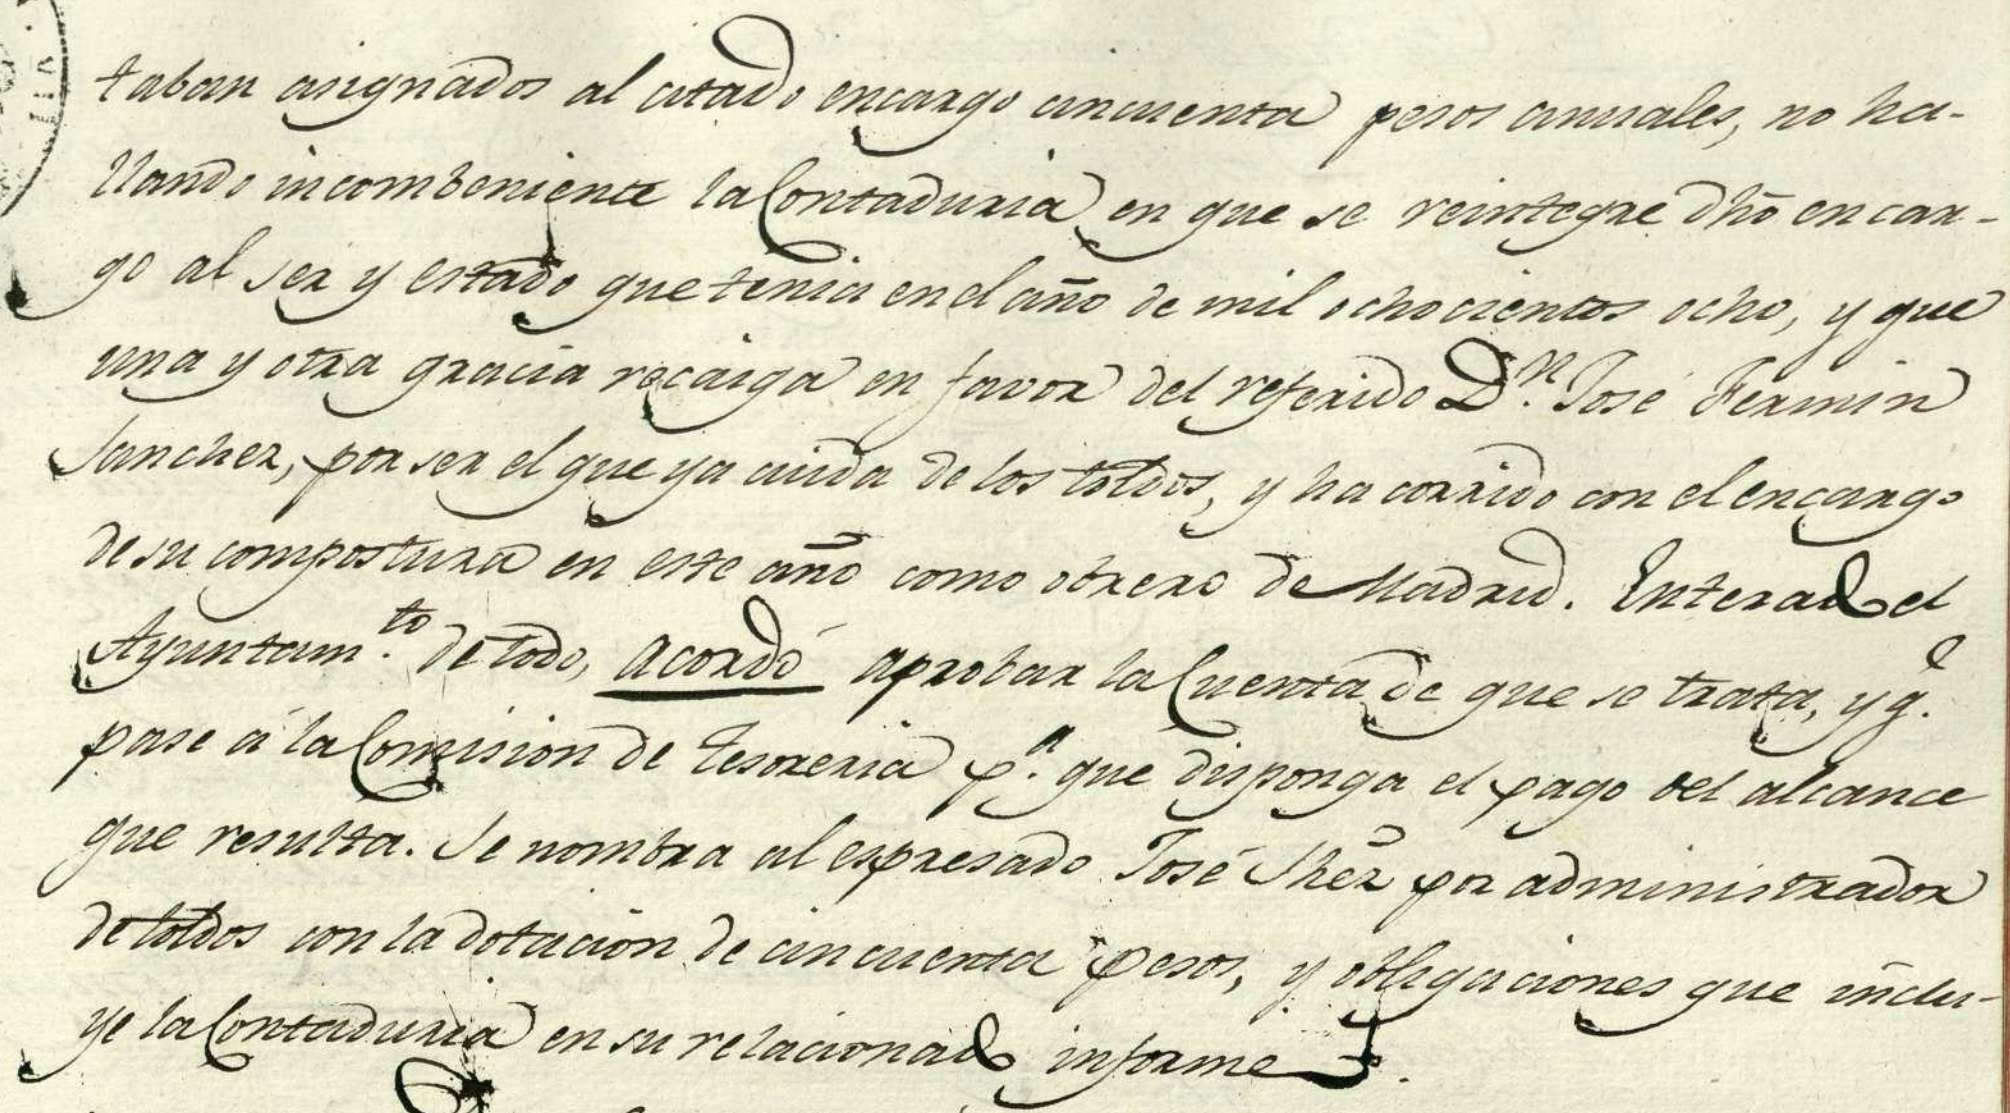 taban asignados al citado encargo cincuenta pesos annuales, no ha-
llando incombeniente la Contaduria en que se reintegre dhō encar-
go al ser y estado que tenia en el año de mil ochocientos ocho, y que
una y otra gracia recaiga en favor del referido D.n José Fermin
Sanchez, por ser el que ya cuida de los toldos, y ha corrido con el encargo
de su compostura en este año como obrero de Madrid. Enterado el
Ayuntam.to de todo, acordó aprobar la Cuenta de que se trata, y q.e
pase á la Comision de Tesoreria p.a que disponga el pago del alcance
que resulta. Se nombra al espresado José Shēz por administrador
de toldos con la dotacion de cincuenta pesos, y obligaciones que inclu-
ye la Contaduria en su relacionado informe.